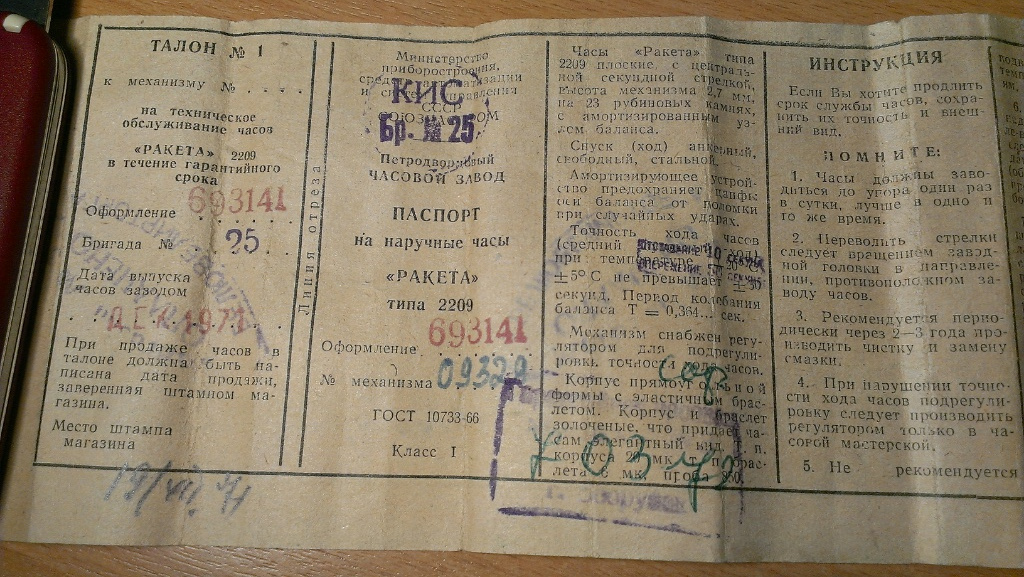 ТАЛОН № 1
к механизму № . . . .
на техническое
обслуживание часов
«РАКЕТА» 2209
в течение гарантийного
срока
693141
Оформление
Бригада № 25
Дата выпуска
часов заводом
ДЕК 1971
При продаже часов в
талоне должна быть на-
писана дата продажи,
заверенная штампом ма-
газина.
Место штампа
магазина
Линия отреза
Министерство
приборостроения,
средств автоматизации
и систем управления
СССР
КИС
Бр. № 25
Петродворцовый
ЧАСОВОЙ ЗАВОД
ПАСПОРТ
на наручные часы
«РАКЕТА»
типа 2209
693141
Оформление
№ механизма 09329
ГОСТ 10733-66
Класс I
Часы «Ракета» типа
2209 плоские, с централь-
ной секундной стрелкой,
высота механизма 2,7 мм,
на 23 рубиновых камнях,
с амортизированным уз-
лом баланса.
Спуск (ход) анкерный,
свободный, стальной.
Амортизирующее устрой-
ство предохраняет цапфы
оси баланса от поломки
при случайных ударах.
Точность хода часов
(средний
при температуре 20°
±5°С не превышает
секунд. Период колебания
баланса Т = 0,364... сек.
Механизм снабжен регу-
лятором для подрегули-
ровки точности хода часов.
Корпус прямоугольной
формы с эластичным брас-
летом. Корпус и браслет
золоченые, что придает ча-
сам элегантный вид.
корпуса 20 мк, брас-
лета мк, проба
ИНСТРУКЦИЯ
Если Вы хотите продлить
срок службы часов, сохра-
нить их точность и внеш-
ний вид,
ПОМНИТЕ:
1. Часы должны заво-
диться до упора один раз
в сутки, лучше в одно и
то же время.
2. Переводить стрелки
следует вращением завод-
ной головки в направле-
нии, противоположном за-
воду часов.
3. Рекомендуется перио-
дически через 2—3 года про-
изводить чистку и замену
смазки.
4. При нарушении точно-
сти хода часов подрегули-
ровку следует производить
регулятором только в ча-
совой мастерской.
5. Не рекомендуется